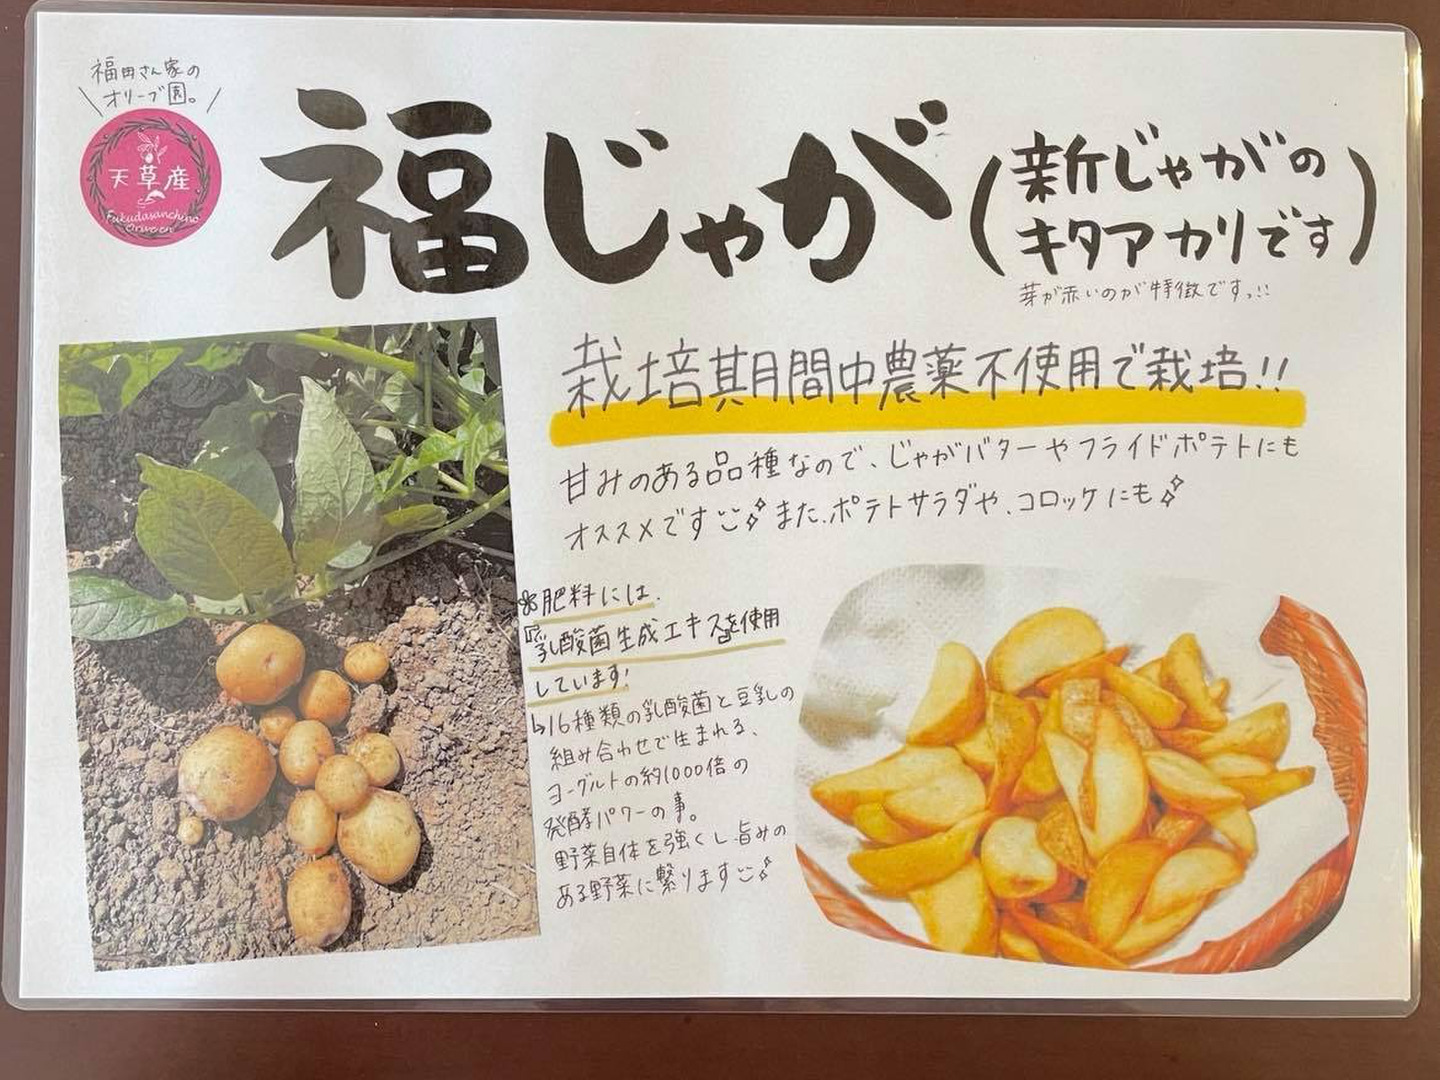 福田さん家の
オリーブ園。
天草産
Fukudasanchino
福じゃが
(新じゃがの
キタアカリです)
芽が赤いのが特徴ですっ!!
栽培期間中農薬不使用で栽培!!
甘みのある品種なので、じゃがバターやフライドポテトにも
オススメです また、ポテトサラダや、コロッケにも
※肥料には、
『乳酸菌生成エキス』を使用
しています!
↳16種類の乳酸菌と豆乳の
組み合わせで生まれる、
ヨーグルトの約1000倍の
発酵パワーの事。
野菜自体を強くし旨みの
ある野菜に繋ります